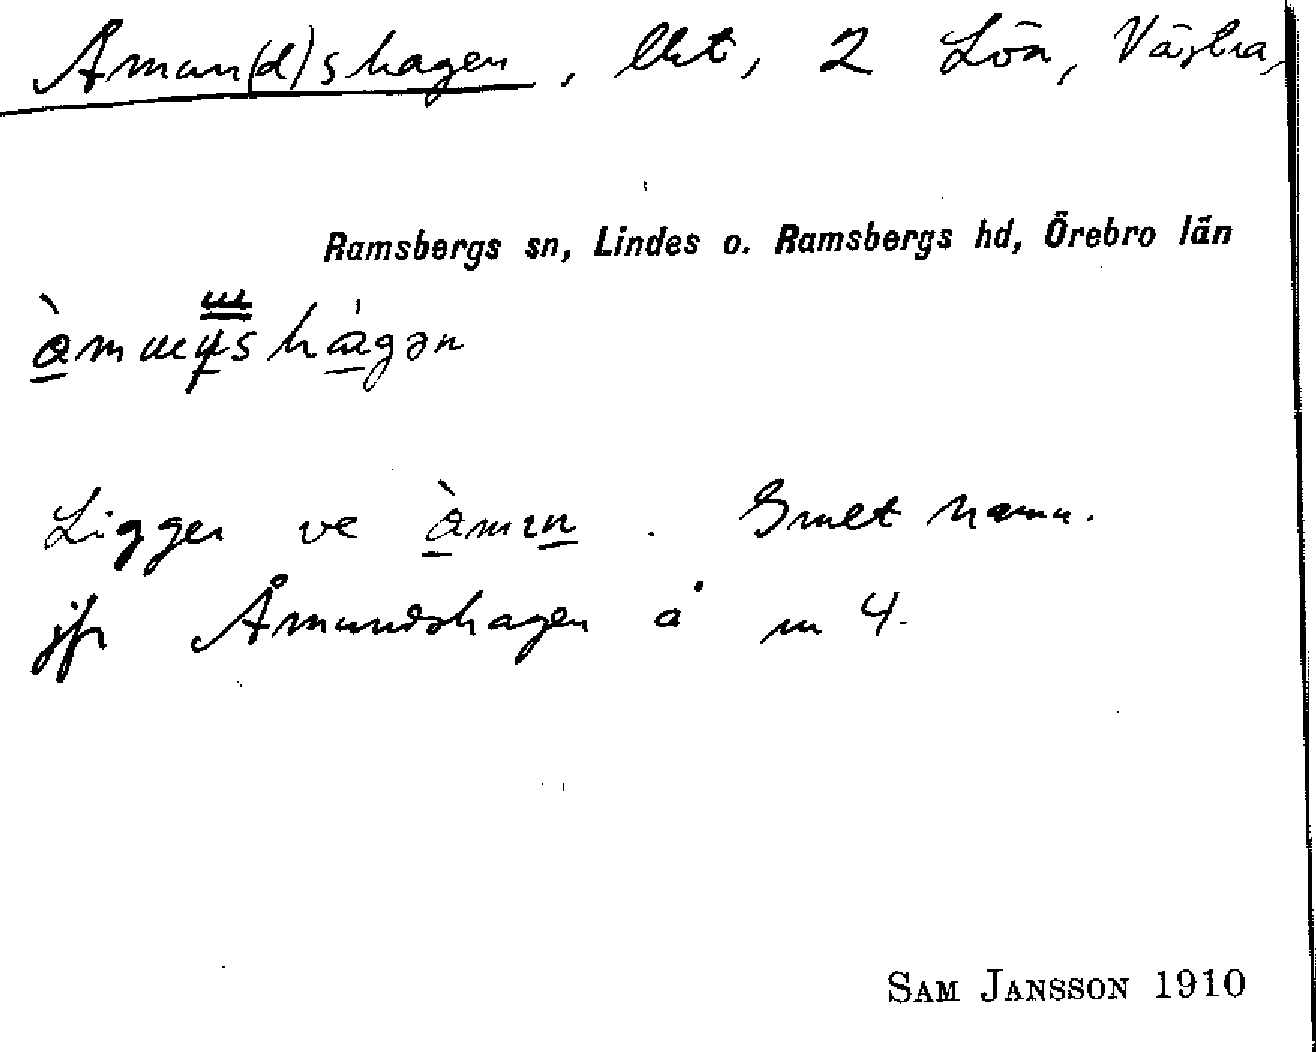 Åmun(d)shagen, lht, 2 Lön, Västra,
Ramsbergs sn, Lindes o. Ramsbergs hd, Örebro län
Ligger ve . namn.
jfr Åmundshagen å 4.
SAM JANSSON 1910